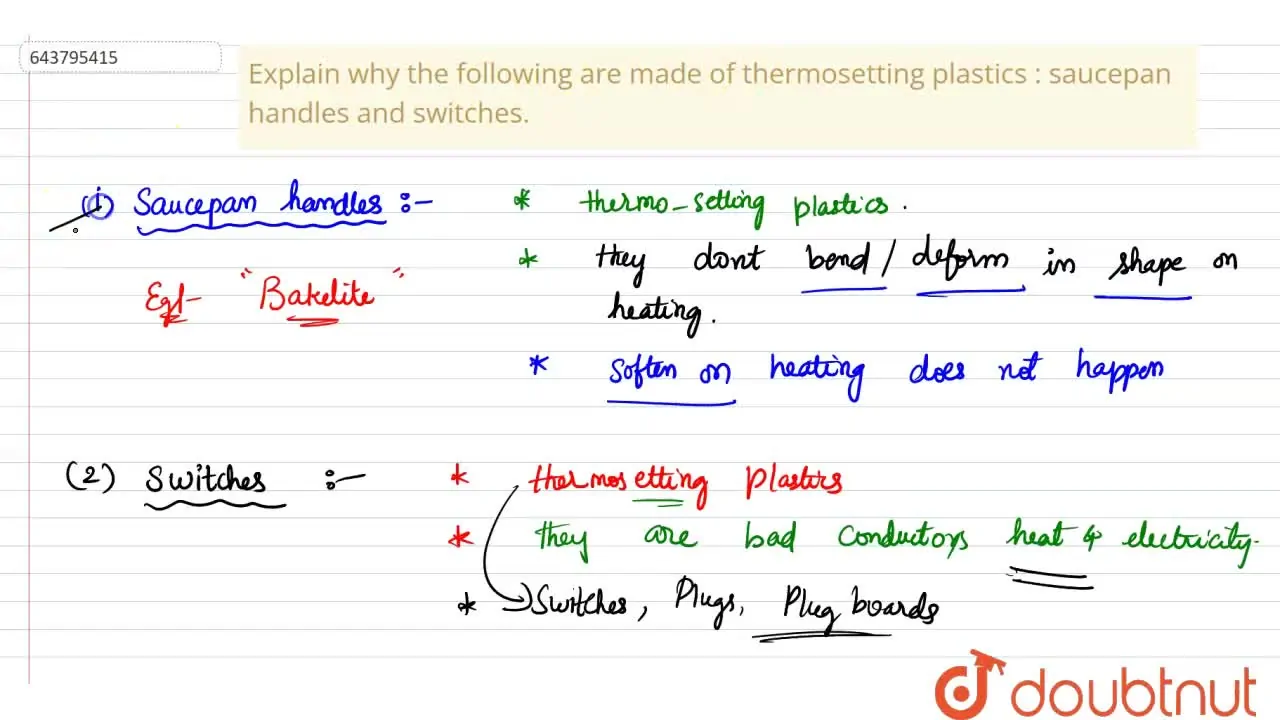 643795415
Explain why the following are made of thermosetting plastics : saucepan
handles and switches.
(i) Saucepan handles :-
* thermo-setting plastics.
Eg:- "Bakelite"
* they dont bend / deform in shape on
heating.
* Soften on heating does not happen
(2) Switches :-
* thermosetting Plastics
* they are bad conductors heat & electricity.
* Switches, Plugs, Plug boards
doubtnut